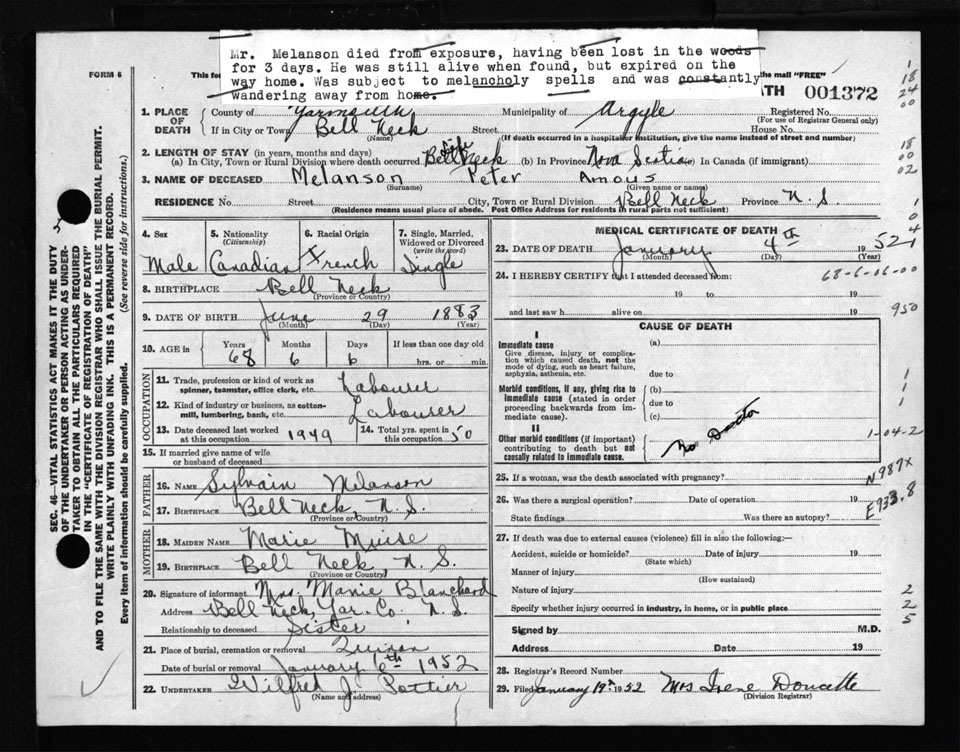 Mr. Melanson died from exposure, having been lost in the woods
for 3 days. He was still alive when found, but expired on the
way home. Was subject to melancholy spells and was constantly
wandering away from home.
FORM 6
This for
the mail "FREE"
TH 001372
1. PLACE OF DEATH
County of Yarmouth Municipality of Argyle Registered No.
(For use of Registrar General only)
If in City or Town Bell Neck Street House No.
(Name) (If death occurred in a hospital or institution, give the name instead of street and number)
2. LENGTH OF STAY (in years, months and days)
(a) In City, Town or Rural Division where death occurred Bell Neck Life (b) In Province Nova Scotia (c) In Canada (if immigrant)
3. NAME OF DECEASED Melanson Peter Amous
(Surname) (Given name or names)
RESIDENCE No. Street City, Town or Rural Division Bell Neck Province N.S.
(Residence means usual place of abode. Post Office Address for residents in rural parts not sufficient)
4. Sex 5. Nationality (Citizenship) 6. Racial Origin 7. Single, Married, Widowed or Divorced (write the word)
Male Canadian French Single
8. BIRTHPLACE Bell Neck
(Province or Country)
9. DATE OF BIRTH June 29 1883
(Month) (Day) (Year)
10. AGE in Years Months Days If less than one day old
68 6 6 hrs. or min.
OCCUPATION
11. Trade, profession or kind of work as spinner, teamster, office clerk, etc. Labourer
12. Kind of industry or business, as cotton-mill, lumbering, bank, etc. Labourer
13. Date deceased last worked at this occupation 1949 14. Total yrs. spent in this occupation 50
15. If married give name of wife or husband of deceased
FATHER
16. NAME Sylvain Melanson
17. BIRTHPLACE Bell Neck, N.S.
(Province or Country)
MOTHER
18. MAIDEN NAME Marie Muise
19. BIRTHPLACE Bell Neck N.S.
(Province or Country)
20. Signature of informant Mrs. Manie Blanchard
Address Bell Neck Yar. Co. N.S.
Relationship to deceased Sister
21. Place of burial, cremation or removal Quinan
Date of burial or removal January 6th 1952
22. UNDERTAKER Wilfred J. Pottier
(Name and address)
MEDICAL CERTIFICATE OF DEATH
23. DATE OF DEATH January 4th 1952
(Month) (Day) (Year)
24. I HEREBY CERTIFY that I attended deceased from:
68-6-06-00
19 to 19
and last saw h alive on 19
950
CAUSE OF DEATH
I
Immediate cause
Give disease, injury or complication which caused death, not the mode of dying, such as heart failure, asphyxia, asthenia, etc.
(a)
due to
Morbid conditions, if any, giving rise to immediate cause (stated in order proceeding backwards from immediate cause).
(b)
due to
(c)
II
Other morbid conditions (if important) contributing to death but not causally related to immediate cause.
No Doctor
1-04-2
25. If a woman, was the death associated with pregnancy?
N989X
26. Was there a surgical operation? Date of operation 19
E933.8
State findings Was there an autopsy?
27. If death was due to external causes (violence) fill in also the following:—
Accident, suicide or homicide? Date of injury 19
(State which)
Manner of injury
(How sustained)
Nature of injury
Specify whether injury occurred in industry, in home, or in public place
Signed by M.D.
Address Date 19
28. Registrar's Record Number
29. Filed January 19th 1952 Mrs Irene Doucette
(Division Registrar)
18
24
00
18
00
02
1
0
4
1
1
1
1
2
2
5
SEC. 46—VITAL STATISTICS ACT MAKES IT THE DUTY
OF THE UNDERTAKER OR PERSON ACTING AS UNDER-
TAKER TO OBTAIN ALL THE PARTICULARS REQUIRED
IN THE "CERTIFICATE OF REGISTRATION OF DEATH"
AND TO FILE THE SAME WITH THE DIVISION REGISTRAR WHO SHALL ISSUE THE BURIAL PERMIT.
WRITE PLAINLY WITH UNFADING INK. THIS IS A PERMANENT RECORD.
Every item of information should be carefully supplied. (See reverse side for instructions.)